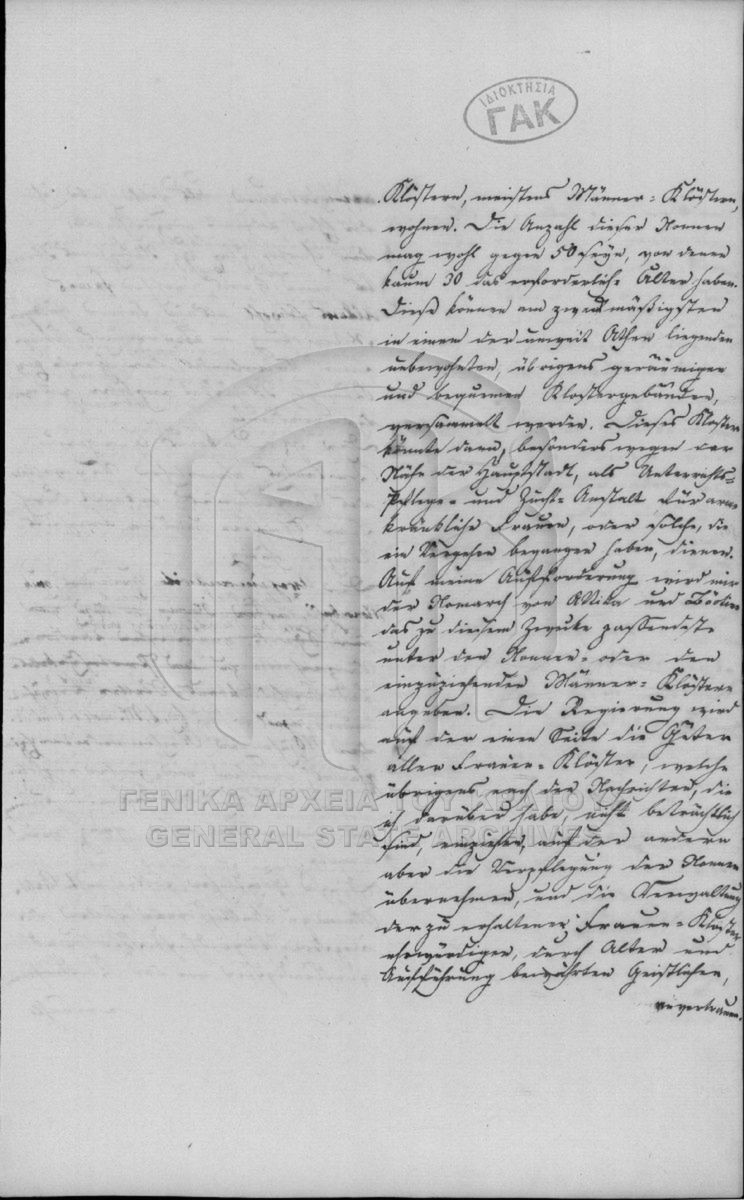 ΙΔΙΟΚΤΗΣΙΑ
ΓΑΚ
Klöstern, meistens Männer-Klöstern,
wohnen. Die Anzahl dieser Nonnen
mag wohl gegen 50 seyn, von denen
kaum 30 das erforderliche Alter haben.
Diese können am zweckmäßigsten
in einem der unweit Athen liegenden
unbewohnten, übrigens geräumigen
und bequemen Klostergebäuden,
versammelt werden. Dieses Kloster
könnte dann, besonders wegen der
Nähe der Hauptstadt, als Unterrichts-
Pflege- und Zucht-Anstalt für arme
kränkliche Frauen, oder solche, die
ein Vergehen begangen haben, dienen.
Auf meine Aufforderung wird mir
der Nomarch von Attika und Böotien
das zu diesem Zwecke passendste
unter den Nonnen- oder den
einzuziehenden Männer-Klöstern
angeben. Die Regierung wird
auf der einen Seite die Güter
aller Frauen-Klöster, welche
übrigens nach den Nachrichten, die
ich darüber habe, nicht beträchtlich
sind, einziehen, auf der andern
aber die Verpflegung der Nonnen
übernehmen, und die Verwaltung
der zu erhaltenen Frauen-Klöster
ehrwürdigen, durch Alter und
Aufführung bewährten Geistlichen,
anvertrauen.
ΓΕΝΙΚΑ ΑΡΧΕΙΑ ΤΟΥ ΚΡΑΤΟΥΣ
GENERAL STATE ARCHIVES